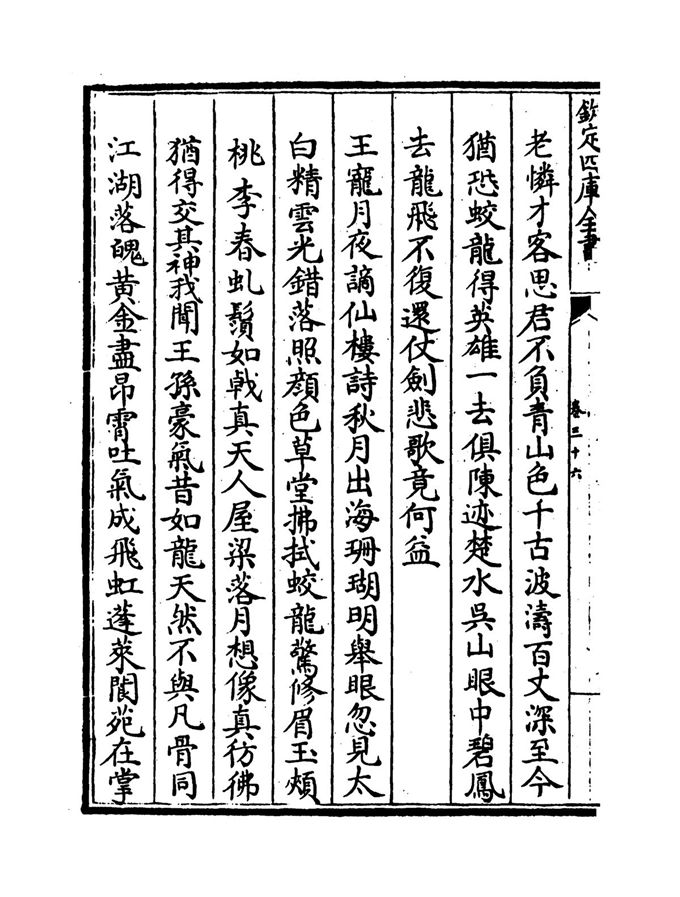 欽定四庫全書
卷三十六
老憐才客思君不負青山色千古波濤百丈深至今
猶恐蛟龍得英雄一去俱陳迹楚水吳山眼中碧鳳
去龍飛不復還仗劍悲歌竟何益
王寵月夜謫仙樓詩秋月出海珊瑚明舉眼忽見太
白精雲光錯落照顔色草堂拂拭蛟龍驚修眉玉頰
桃李春虬鬚如戟真天人屋梁落月想像真彷彿
猶得交其神我聞王孫豪氣昔如龍天然不與凡骨同
江湖落魄黄金盡昂霄吐氣成飛虹蓬萊閬苑在掌